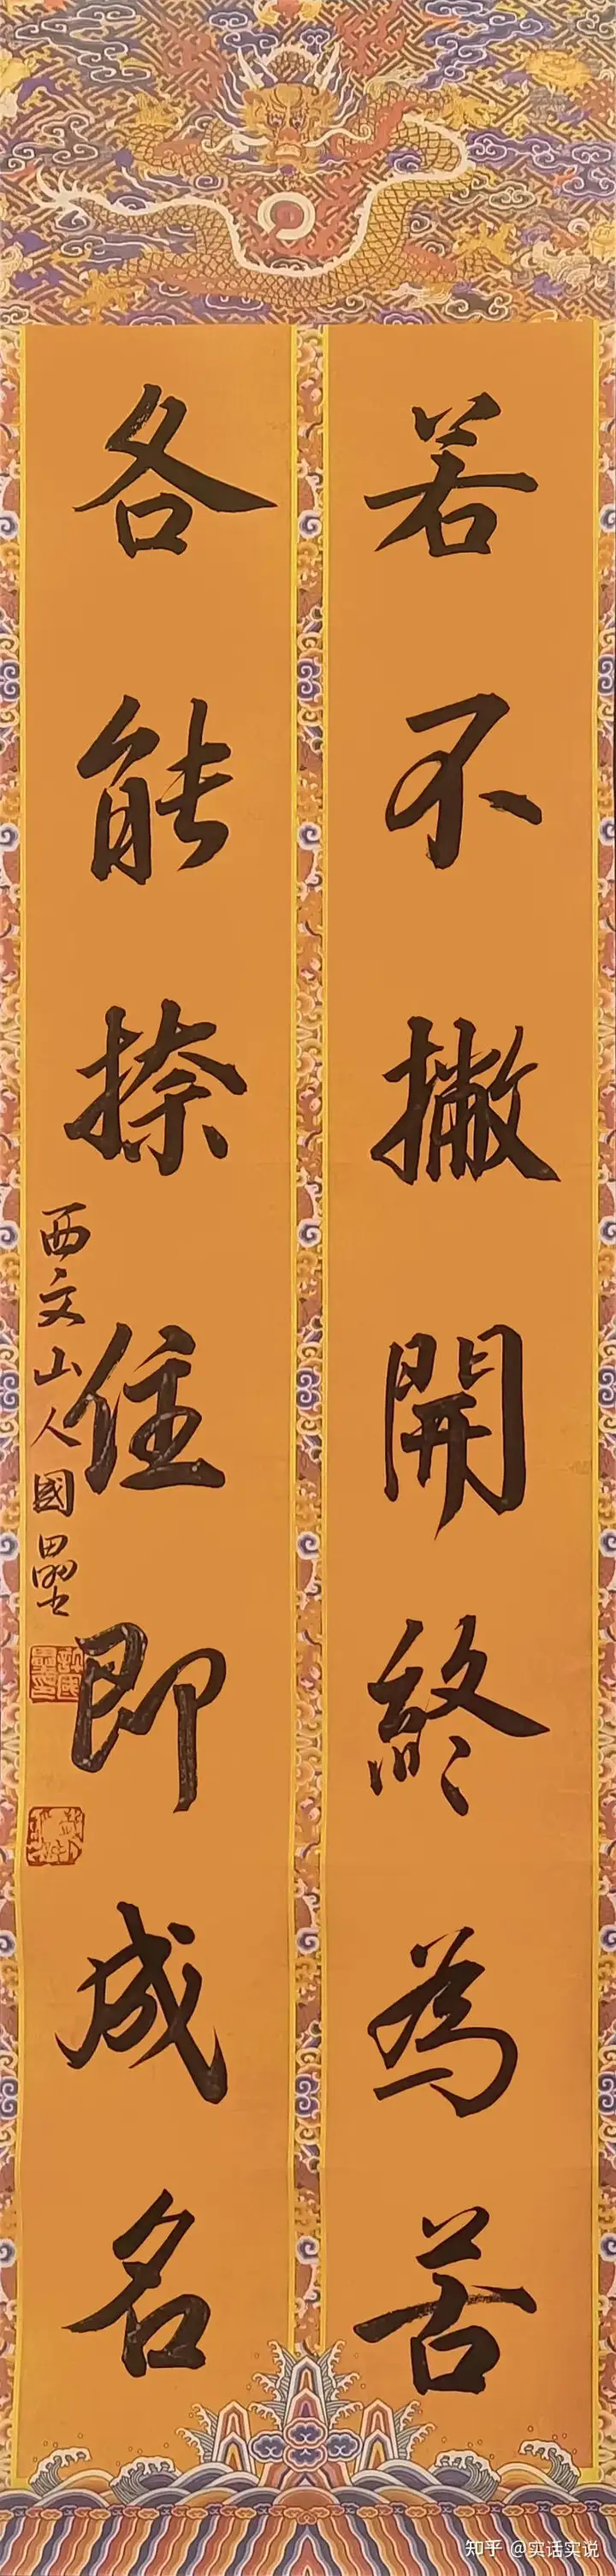 若不撇開終為苦
各能捺住即成名
西文山人國壘
知乎 @实话实说